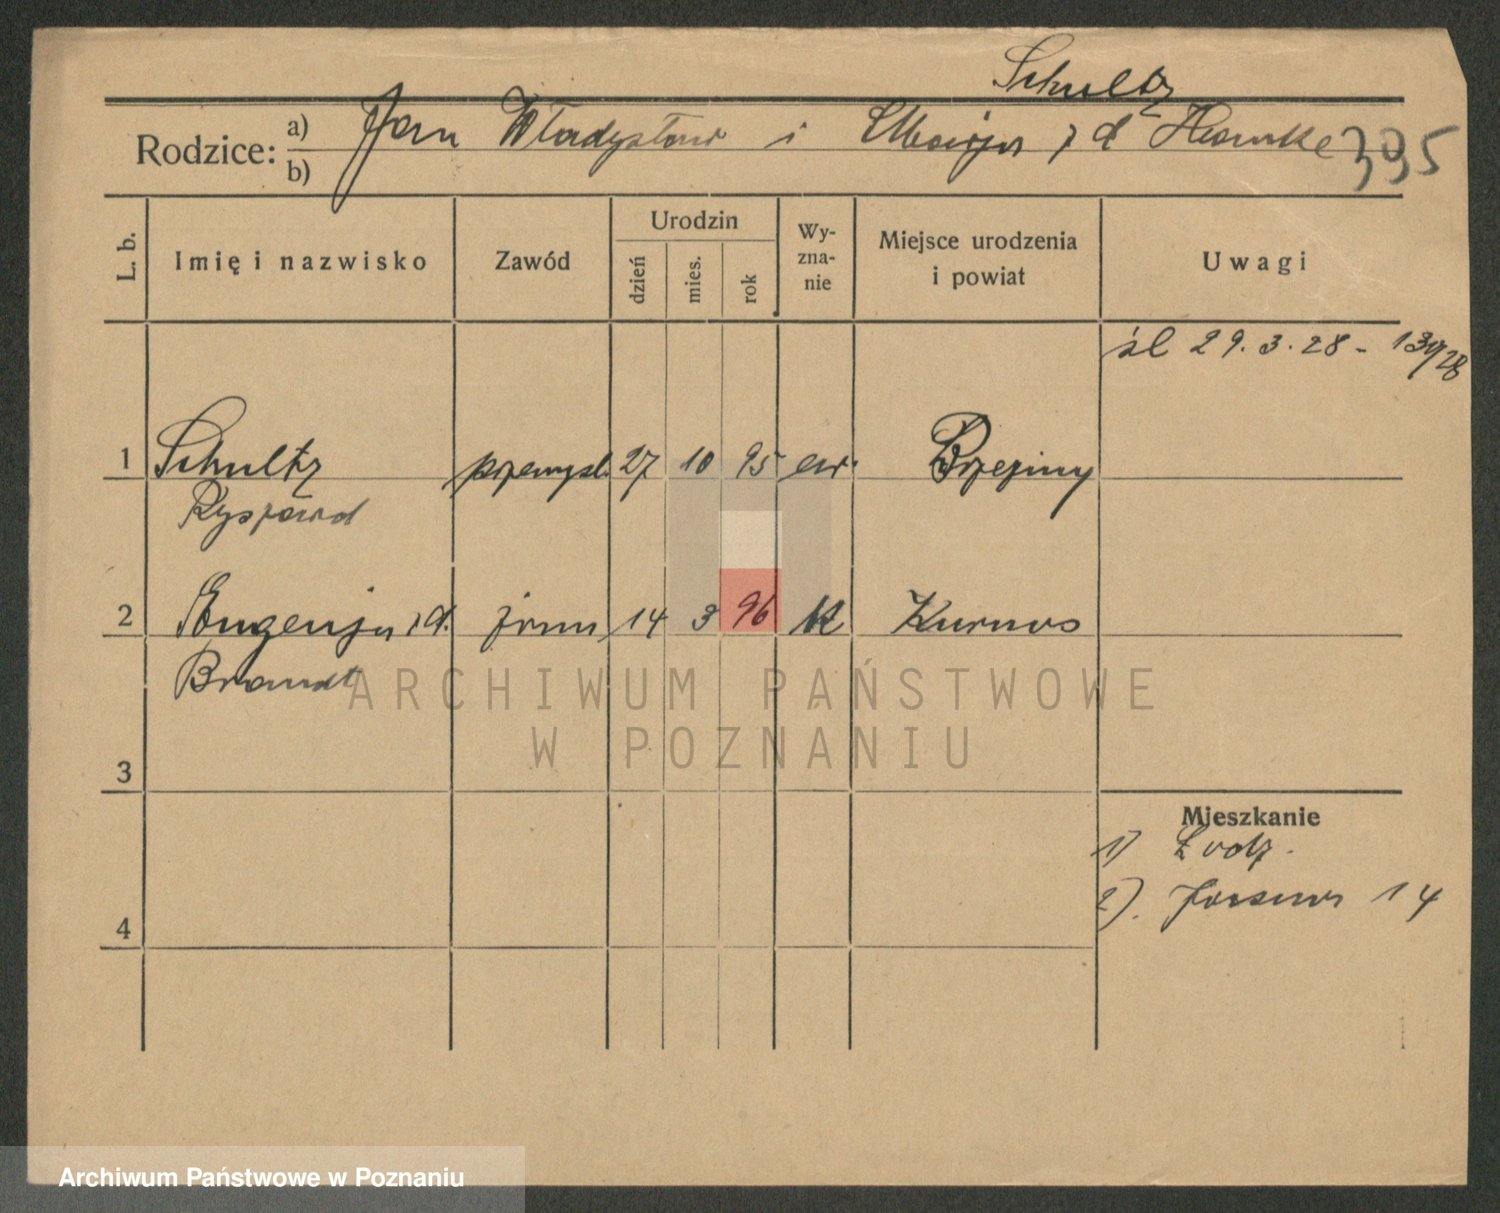 Schultz
Rodzice: a) Jan Władysław i Marja z d Hamke 395
b)
L. b. Imię i nazwisko Zawód Urodzin dzień mies. rok Wy-zna-nie Miejsce urodzenia i powiat Uwagi
śl 29.3.28 - 139/28
1 Schultz przemysł. 27 10 95 ew. Brzeziny
Ryszard
2 Eugenja z d. żona 14 3 96 rk Kurnos
Brandt
ARCHIWUM PAŃSTWOWE
W POZNANIU
3
Mieszkanie
1) Łódź.
2). 14
4
Archiwum Państwowe w Poznaniu